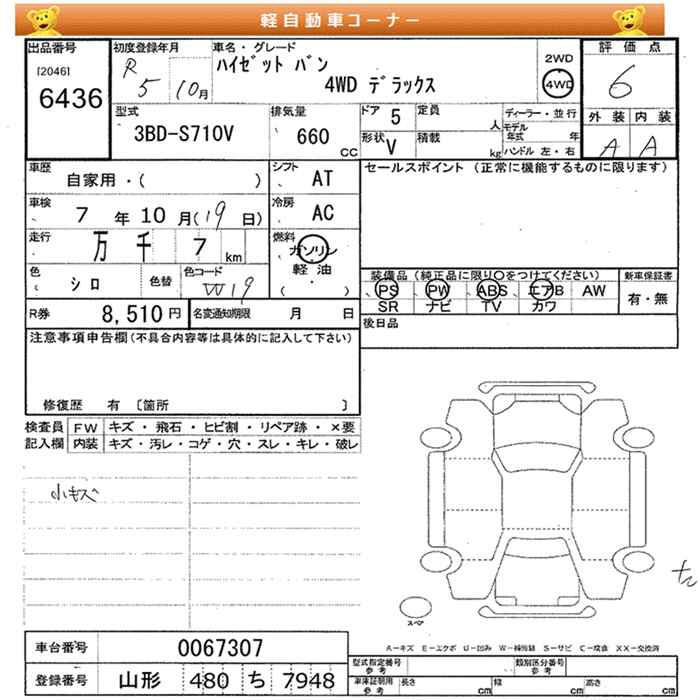 軽自動車コーナー
出品番号
[2046]
6436
初度登録年月
R5 10月
車名・グレード
ハイゼット バン
4WD デラックス
2WD
4WD
評価点
6
外装 内装
A A
型式
3BD-S710V
排気量
660
CC
ドア 5
形状 V
定員
人
積載
kg
ディーラー・並行
モデル年式 年
ハンドル 左・右
車歴
自家用・( )
シフト AT
セールスポイント (正常に機能するものに限ります)
車検
7年10月(19日)
冷房 AC
走行
万 千 7 km
燃料
ガソリン
軽油
( )
色
シロ
色替
色コード
W19
装備品 (純正品に限り○をつけてください)
PS PW ABS エアB AW
SR ナビ TV カワ
新車保証書
有・無
R券 8,510円
名変通知期限 月 日
後日品
注意事項申告欄(不具合内容等は具体的に記入して下さい)
修復歴 有 [箇所 ]
検査員記入欄
FW キズ・飛石・ヒビ割・リペア跡・×要
内装 キズ・汚レ・コゲ・穴・スレ・キレ・破レ
小キズ
スペア
A-キズ E-エクボ U-凹み W-補修跡 S-サビ C-腐食 XX-交換済
車台番号 0067307
登録番号 山形 480 ち 7948
型式指定番号 参考
類別区分番号 参考
車庫証明用 参考
長さ cm 幅 cm 高さ cm